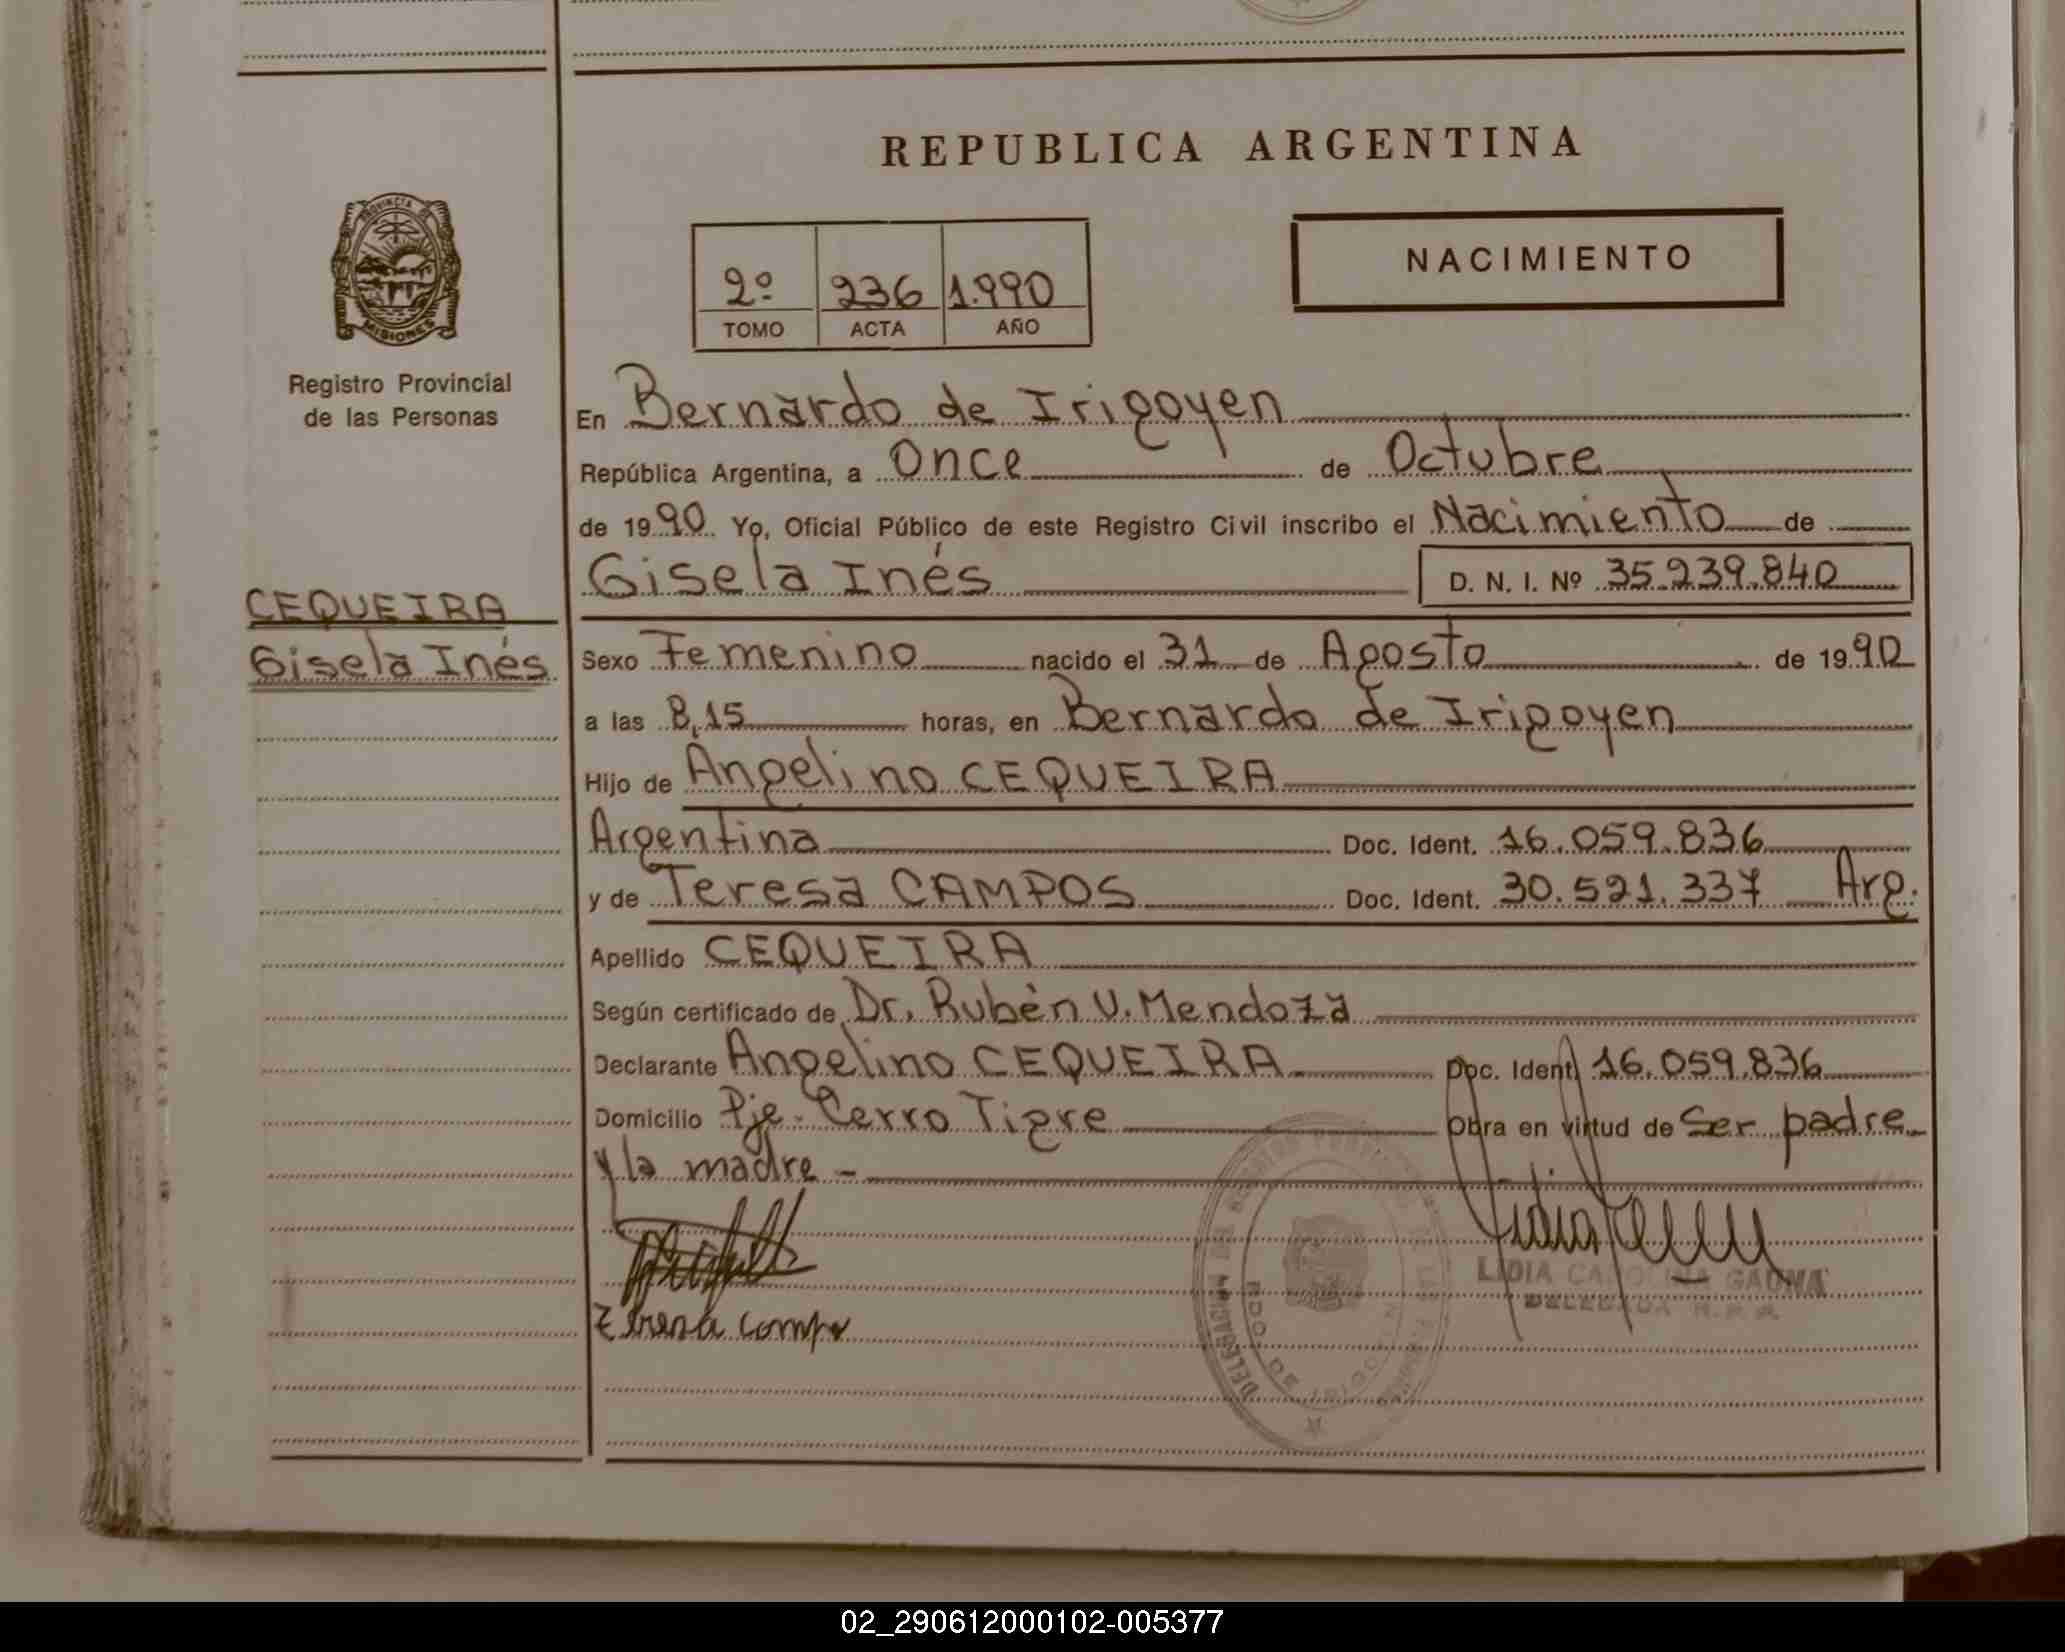 REPUBLICA ARGENTINA
PROVINCIA DE
MISIONES
Registro Provincial
de las Personas
CEQUEIRA
Gisela Inés
NACIMIENTO
2º 236 1.990
TOMO ACTA AÑO
En Bernardo de Irigoyen
República Argentina, a Once de Octubre
de 1990 Yo, Oficial Público de este Registro Civil inscribo el Nacimiento de
Gisela Inés D. N. I. Nº 35.239.840
Sexo Femenino nacido el 31 de Agosto de 1990
a las 8,15 horas, en Bernardo de Irigoyen
Hijo de Angelino CEQUEIRA
Argentina Doc. Ident. 16.059.836
y de Teresa CAMPOS Doc. Ident. 30.521.337 Arg.
Apellido CEQUEIRA
Según certificado de Dr. Rubén V. Mendoza
Declarante Angelino CEQUEIRA Doc. Ident. 16.059.836
Domicilio Pje. Cerro Tigre Obra en virtud de Ser padre
y la madre -
LIDIA CAROLINA GAUNA
DELEGADA R.P.P.
BDO. DE IRIGOYEN
02_290612000102-005377